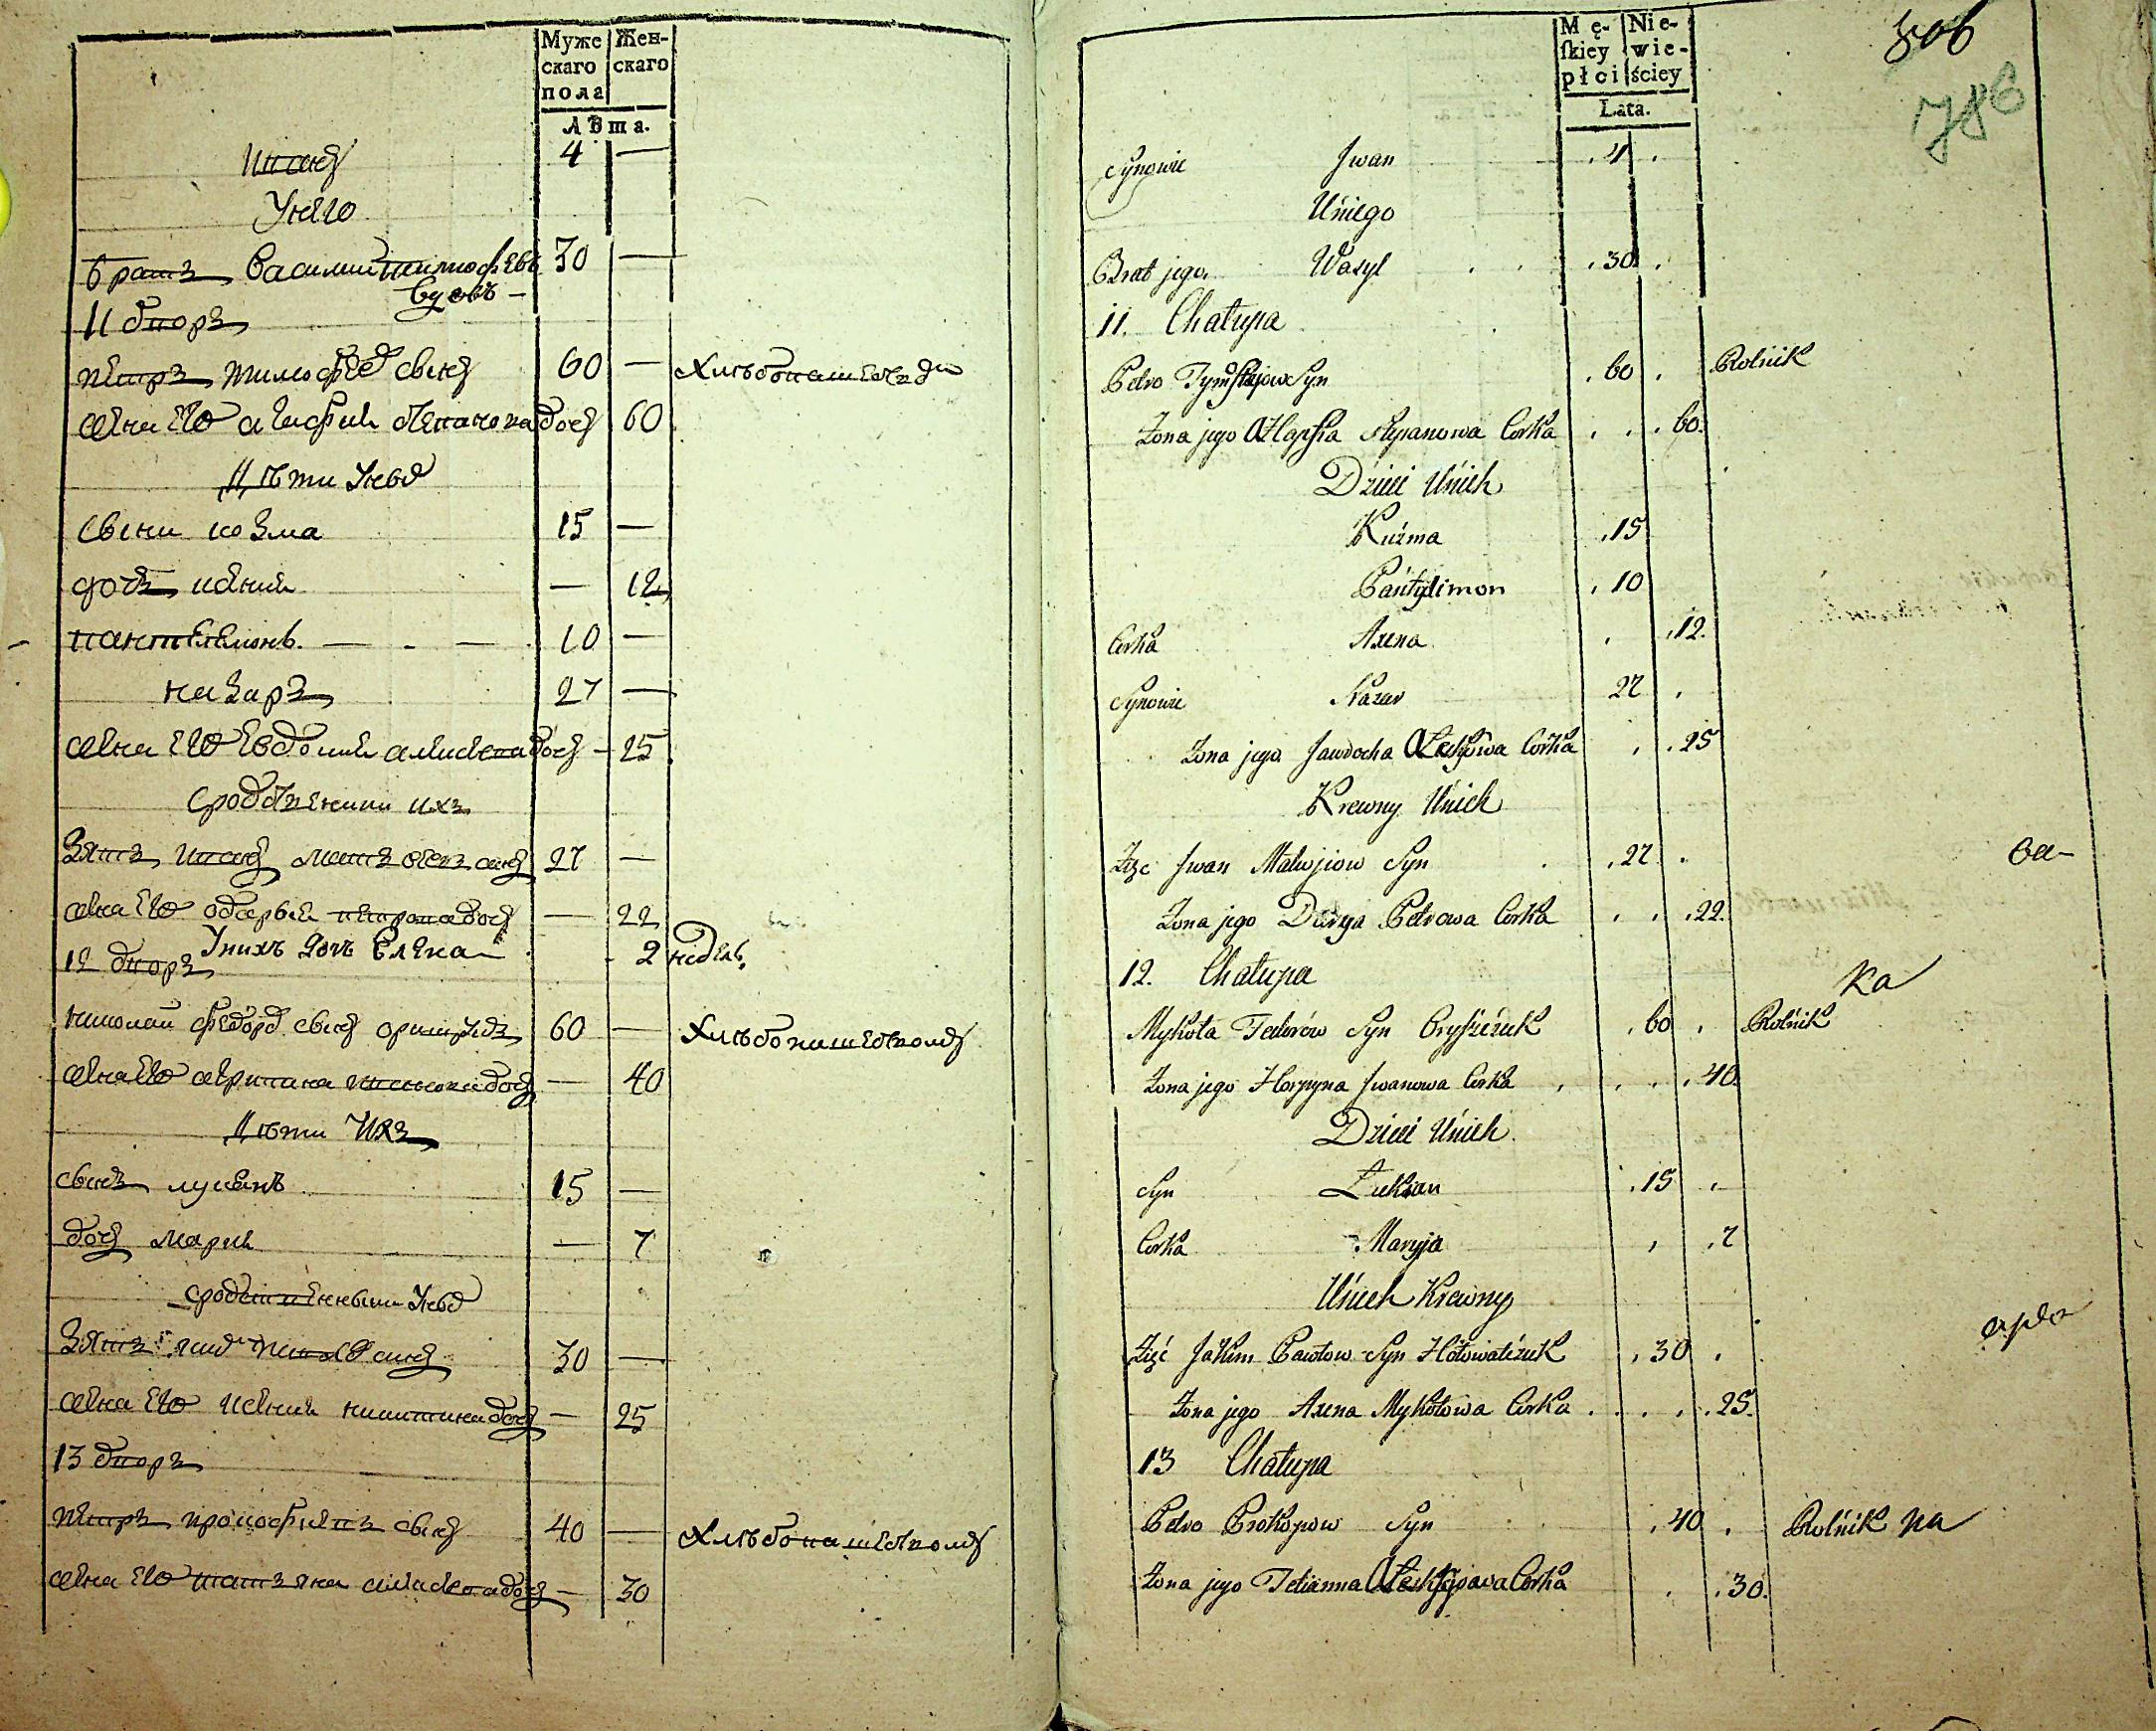 Муже
скаго
пола
Жен-
скаго
Лѣта.
Иванъ 4 —
У него
братъ Василий Тимофѣевъ 30 —
вдовъ —
11 дворъ
Петръ Тимофѣевъ сынъ 60 — Хлѣбопашествомъ
жена его Агафия Степанова дочь 60
Дѣти у нихъ
сыни Козма 15 —
дочь Ксения — 12
Пантелемонъ — - — 10 —
Назаръ 27 —
жена его Евдокия Алексѣева дочь - 25
сродственники ихъ
Зять Иванъ Матвѣевъ сынъ 27 —
жена его Дарья Петрова дочь — 22
У нихъ дочь Елена - 2 недѣль
12 дворъ
Николай Федоровъ сынъ 60 — Хлѣбопашествомъ
жена его Агрипина Иванова дочь — 40
Дѣти ихъ
сынъ Лукьянъ 15 —
дочь Мария — 7
сродственники у нихъ
Зять Яким Павловъ сынъ 30 —
жена его Ксения Никитина дочь — 25
13 дворъ
Петръ Прокофиевъ сынъ 40 — Хлѣбопашествомъ
жена его Татьяна Алексѣева дочь — 30
Mę-
skiey
płci
Nie-
wie-
ściey
Lata.
306
786
Synowie Jwan . 4 .
Uniego
Brat jego Wasyl . . . 30 .
11. Chałupa
Petro Tymofiejow Syn . 60 . Rolnik
Żona jego Ahapfia Stepanowa Corka . . . 60.
Dzieci Unich
Kuźma . 15
Pantylimon . 10
Corka Axena . . 12.
Synowie Nazar 27 .
Żona jego Jawdocha Alexijowa Corka . . 25
Krewny Unich
Zięc Jwan Matwjiow Syn . . 27 .
ва-
Żona jego Darya Petrowa Corka . . . 22.
12. Chałupa
ка
Mykoła Fedorów Syn Oryszczuk . 60 . Rolnik
Żona jego Horpyna Jwanowa Corka . . . . 40.
Dzieci Unich
Syn Łukian . 15 .
Corka Maryja . . 7
Unich Krewny
Zięć Jakim Pawłow Syn Hołowaczuk . 30 .
Żona jego Axena Mykołowa Corka . . . . 25.
13 Chałupa
Petro Prokopow Syn . 40 . Rolnik на
Żona jego Tetianna Alexijowa Corka . . 30.